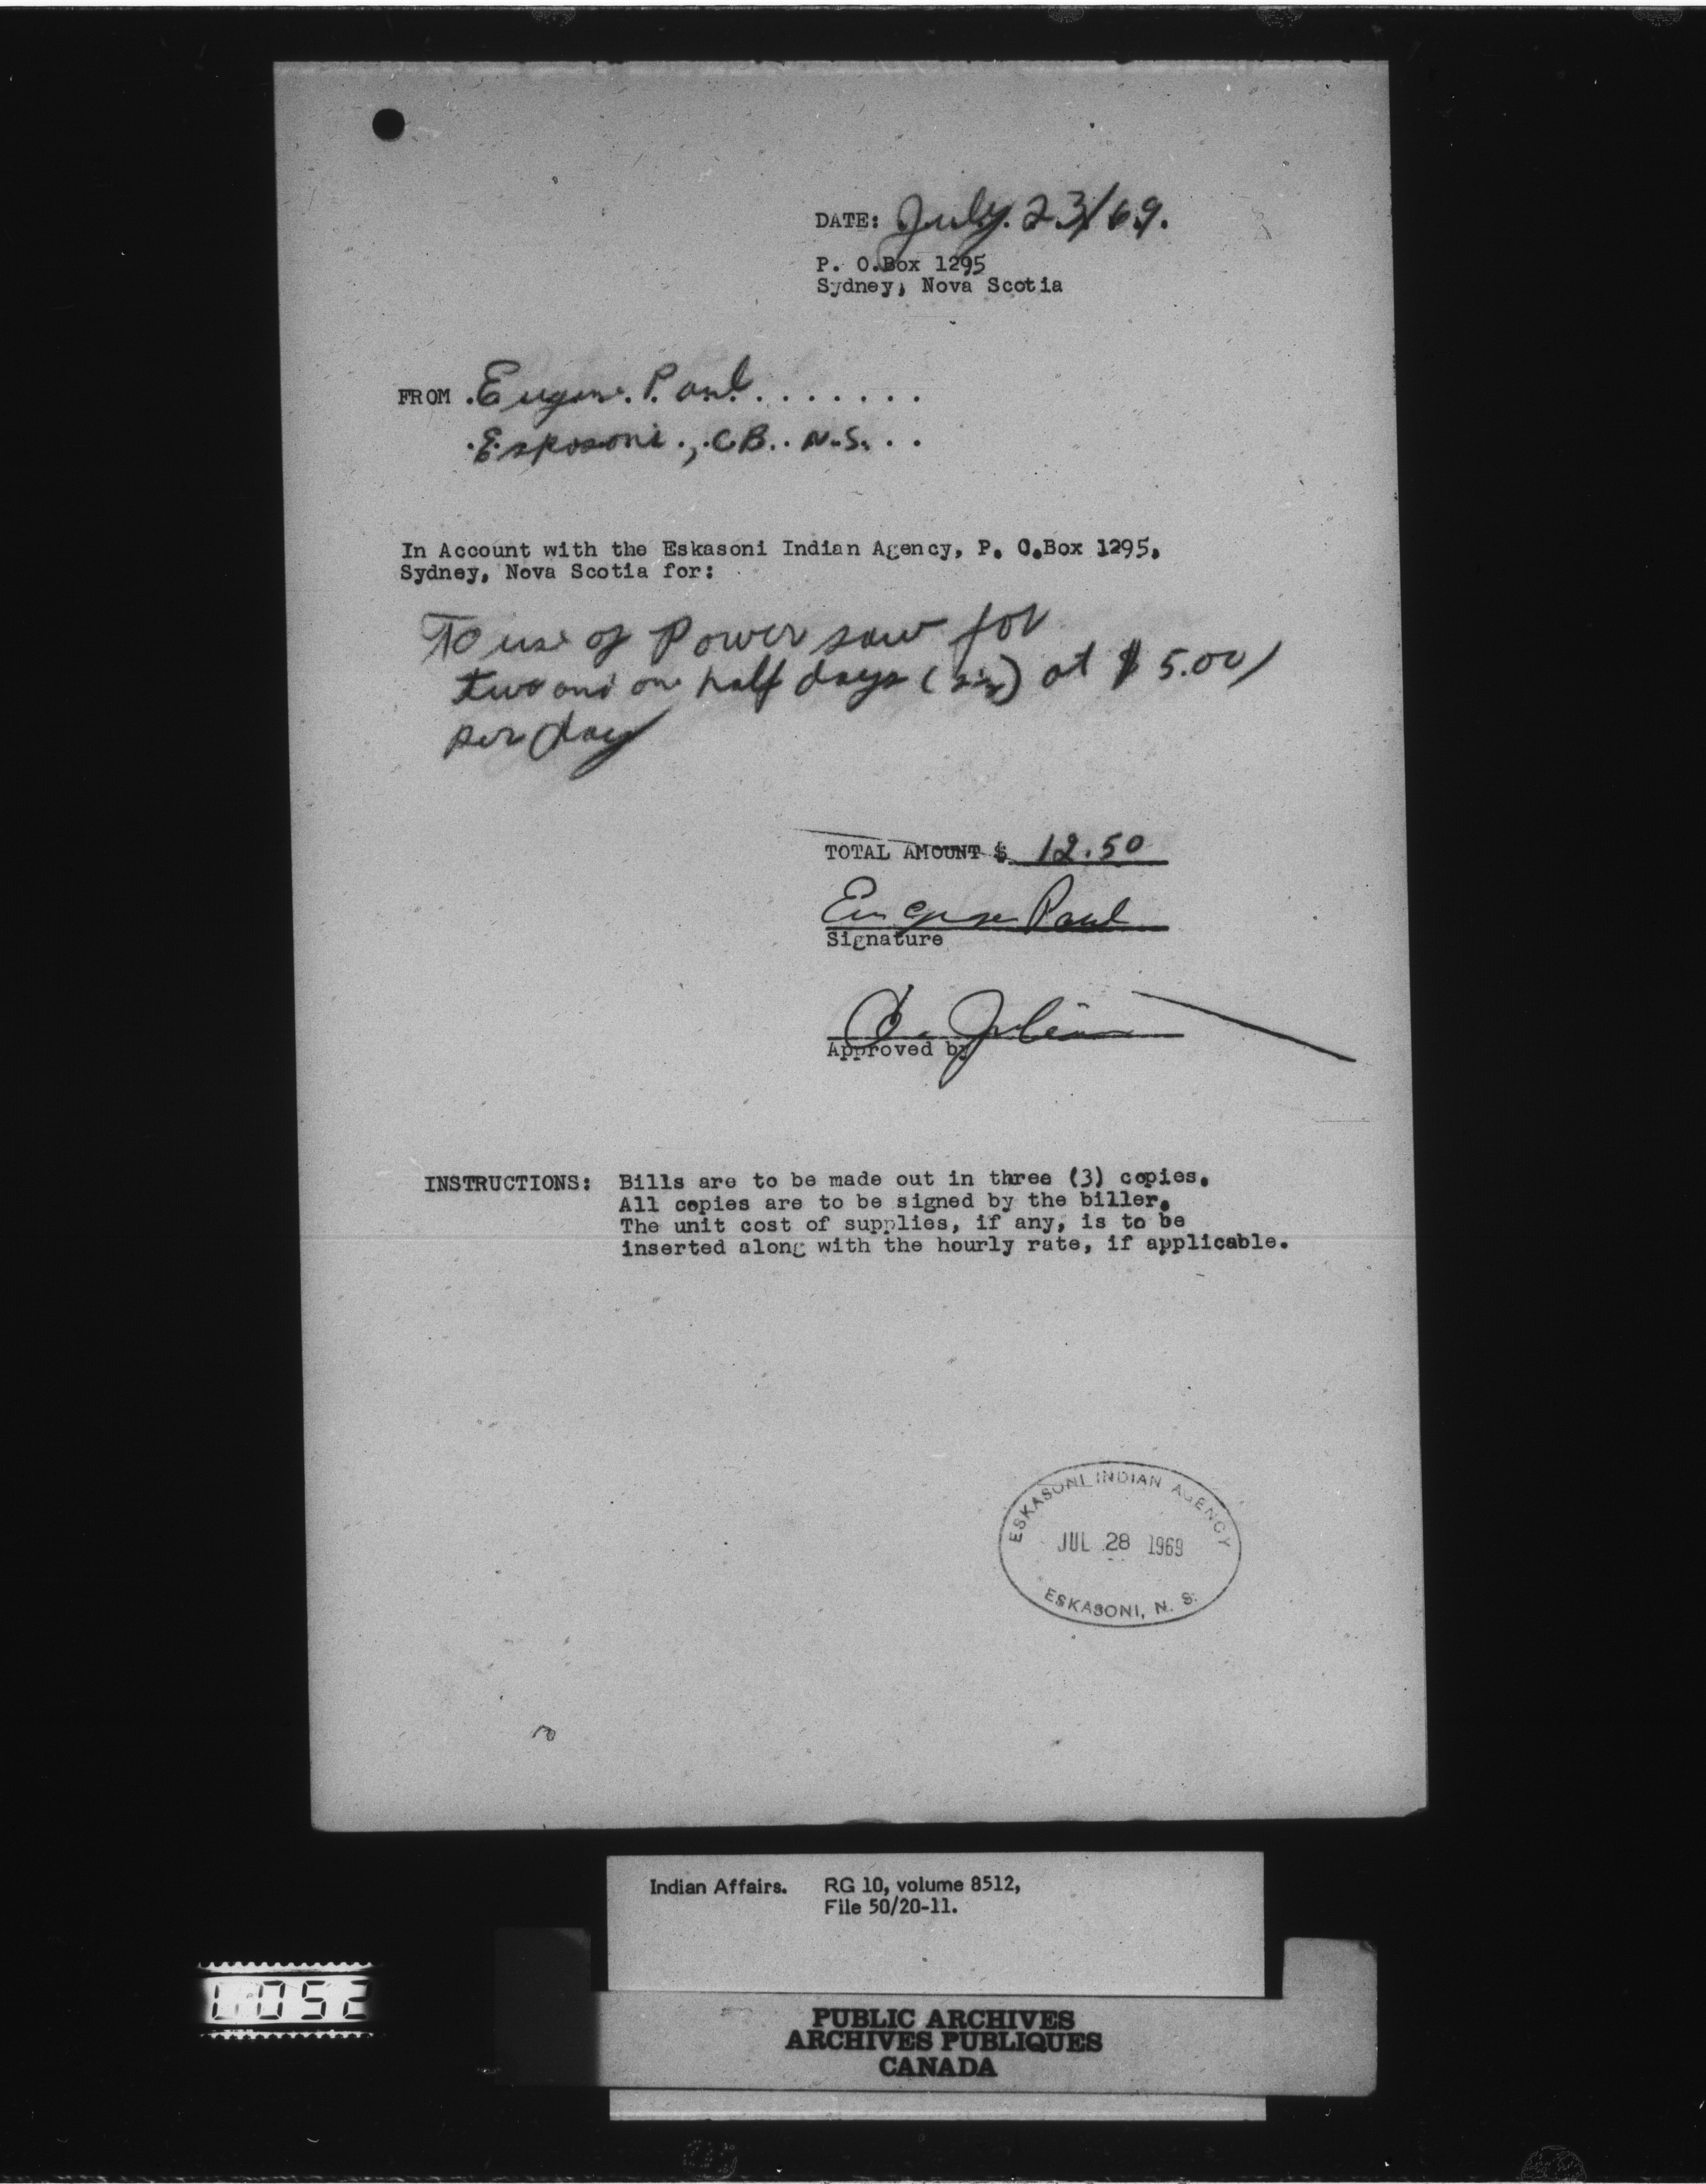 DATE: July. 23/69.
P. O.Box 1295
Sydney, Nova Scotia
FROM .Eugene. Paul. . . . . . . .
.Eskasoni.,.C.B.. N.S. . .
In Account with the Eskasoni Indian Agency, P. O.Box 1295,
Sydney, Nova Scotia for:
To use of Power saw for
two and one half days (2½) at $ 5.00
per day
TOTAL AMOUNT $ 12.50
Eugene Paul
Signature
Julian
Approved by
INSTRUCTIONS: Bills are to be made out in three (3) copies.
All copies are to be signed by the biller.
The unit cost of supplies, if any, is to be
inserted along with the hourly rate, if applicable.
ESKASONI INDIAN AGENCY
JUL 28 1969
ESKASONI, N. S.
Indian Affairs. RG 10, volume 8512,
File 50/20-11.
0052
PUBLIC ARCHIVES
ARCHIVES PUBLIQUES
CANADA